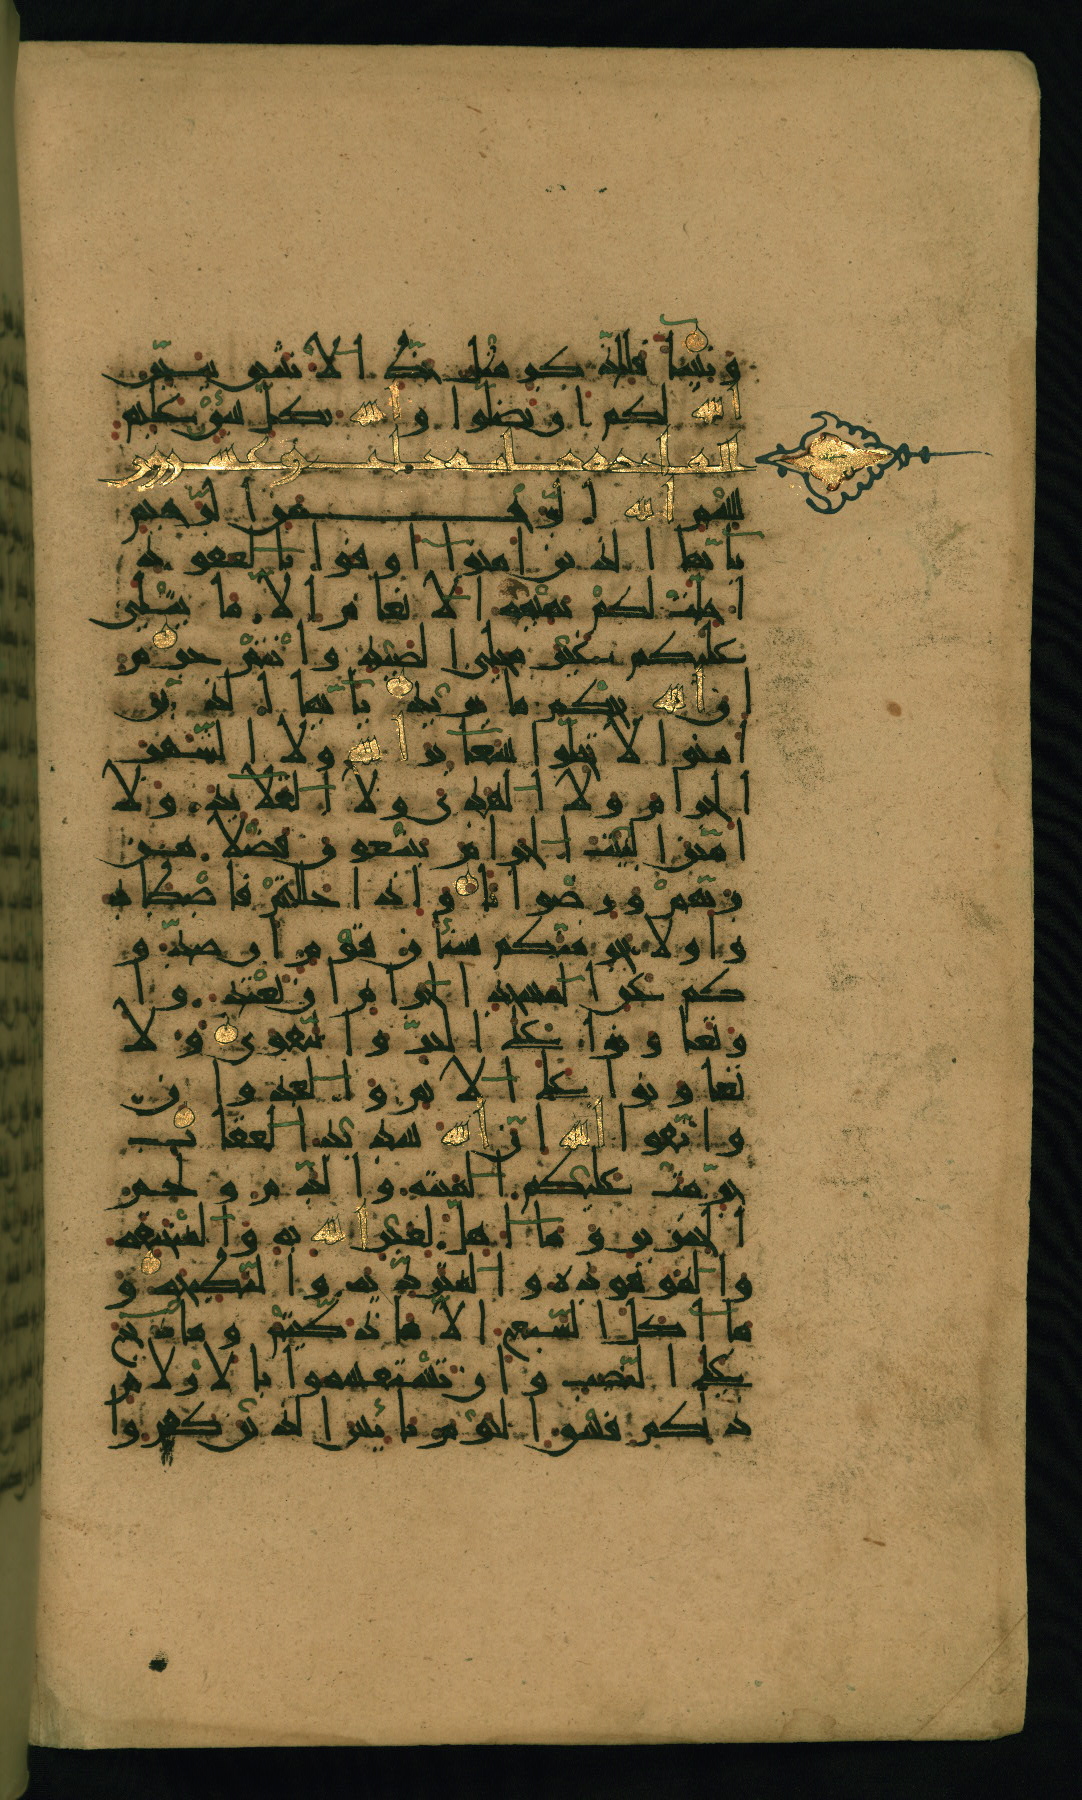 ونسا فللذكر مثل حظ الانثيين يبين
الله لكم ان تضلوا والله بكل شيء عليم
وعشرون
بسم الله الرحمن الرحيم
يايها الذين امنوا اوفوا بالعقود
احلت لكم بهيمة الانعام الا ما يتلى
عليكم غير محلي الصيد وانتم حرم
ان الله يحكم ما يريد يايها الذين
امنوا لا تحلوا شعاير الله ولا الشهر
الحرام ولا الهدي ولا القلايد ولا
امين البيت الحرام يبتغون فضلا من
ربهم ورضوانا واذا حللتم فاصطاد
وا ولا يجرمنكم شنان قوم ان صدو
كم عن المسجد الحرام ان تعتدوا
وتعاونوا على البر والتقوى ولا
تعاونوا على الاثم والعدوان
واتقوا الله ان الله شديد العقاب
حرمت عليكم الميتة والدم ولحم
الخنزير وما اهل لغير الله به والمنخنقة
والموقوذة والمتردية والنطيحة و
ما اكل السبع الا ما ذكيتم وما ذبح
على النصب وان تستقسموا بالازلام
ذلكم فسق اليوم يايس الذين كفروا